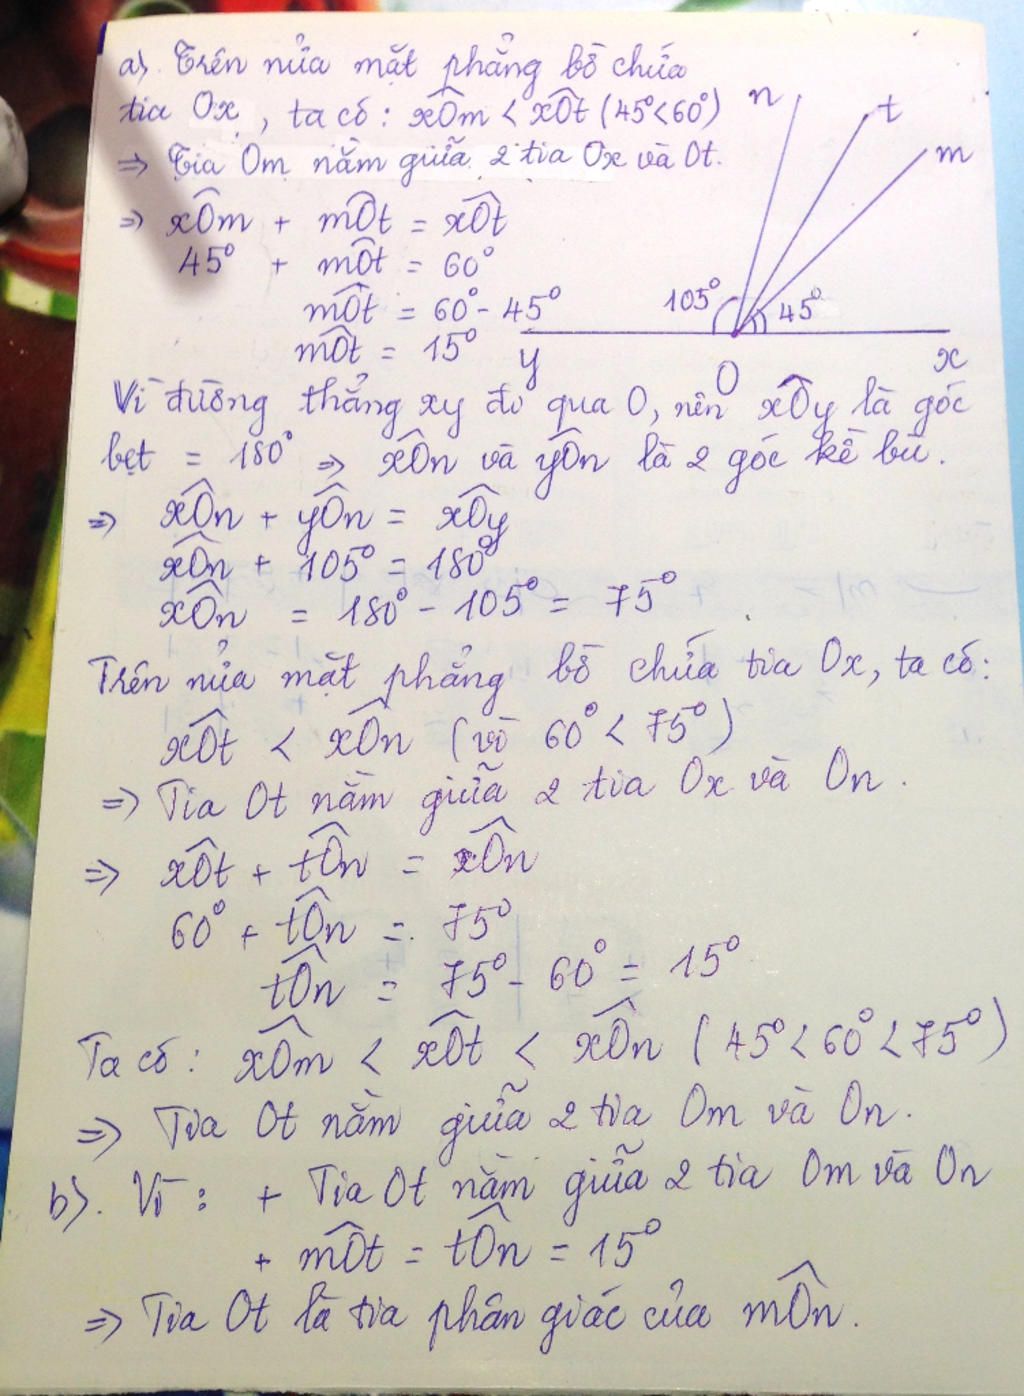 a). Trên nửa mặt phẳng bờ chứa
tia Ox, ta có: xÔm < xÔt (45° < 60°)
=> Tia Om nằm giữa 2 tia Ox và Ot.
=> xÔm + mÔt = xÔt
45° + mÔt = 60°
mÔt = 60° - 45°
mÔt = 15°
n
t
m
105°
45°
y
O
x
Vì đường thẳng xy đi qua O, nên xÔy là góc
bẹt = 180° => xÔn và yÔn là 2 góc kề bù.
=> xÔn + yÔn = xÔy
xÔn + 105° = 180°
xÔn = 180° - 105° = 75°
Trên nửa mặt phẳng bờ chứa tia Ox, ta có:
xÔt < xÔn (vì 60° < 75°)
=> Tia Ot nằm giữa 2 tia Ox và On.
=> xÔt + tÔn = xÔn
60° + tÔn = 75°
tÔn = 75° - 60° = 15°
Ta có: xÔm < xÔt < xÔn (45° < 60° < 75°)
=> Tia Ot nằm giữa 2 tia Om và On.
b). Vì: + Tia Ot nằm giữa 2 tia Om và On
+ mÔt = tÔn = 15°
=> Tia Ot là tia phân giác của mÔn.